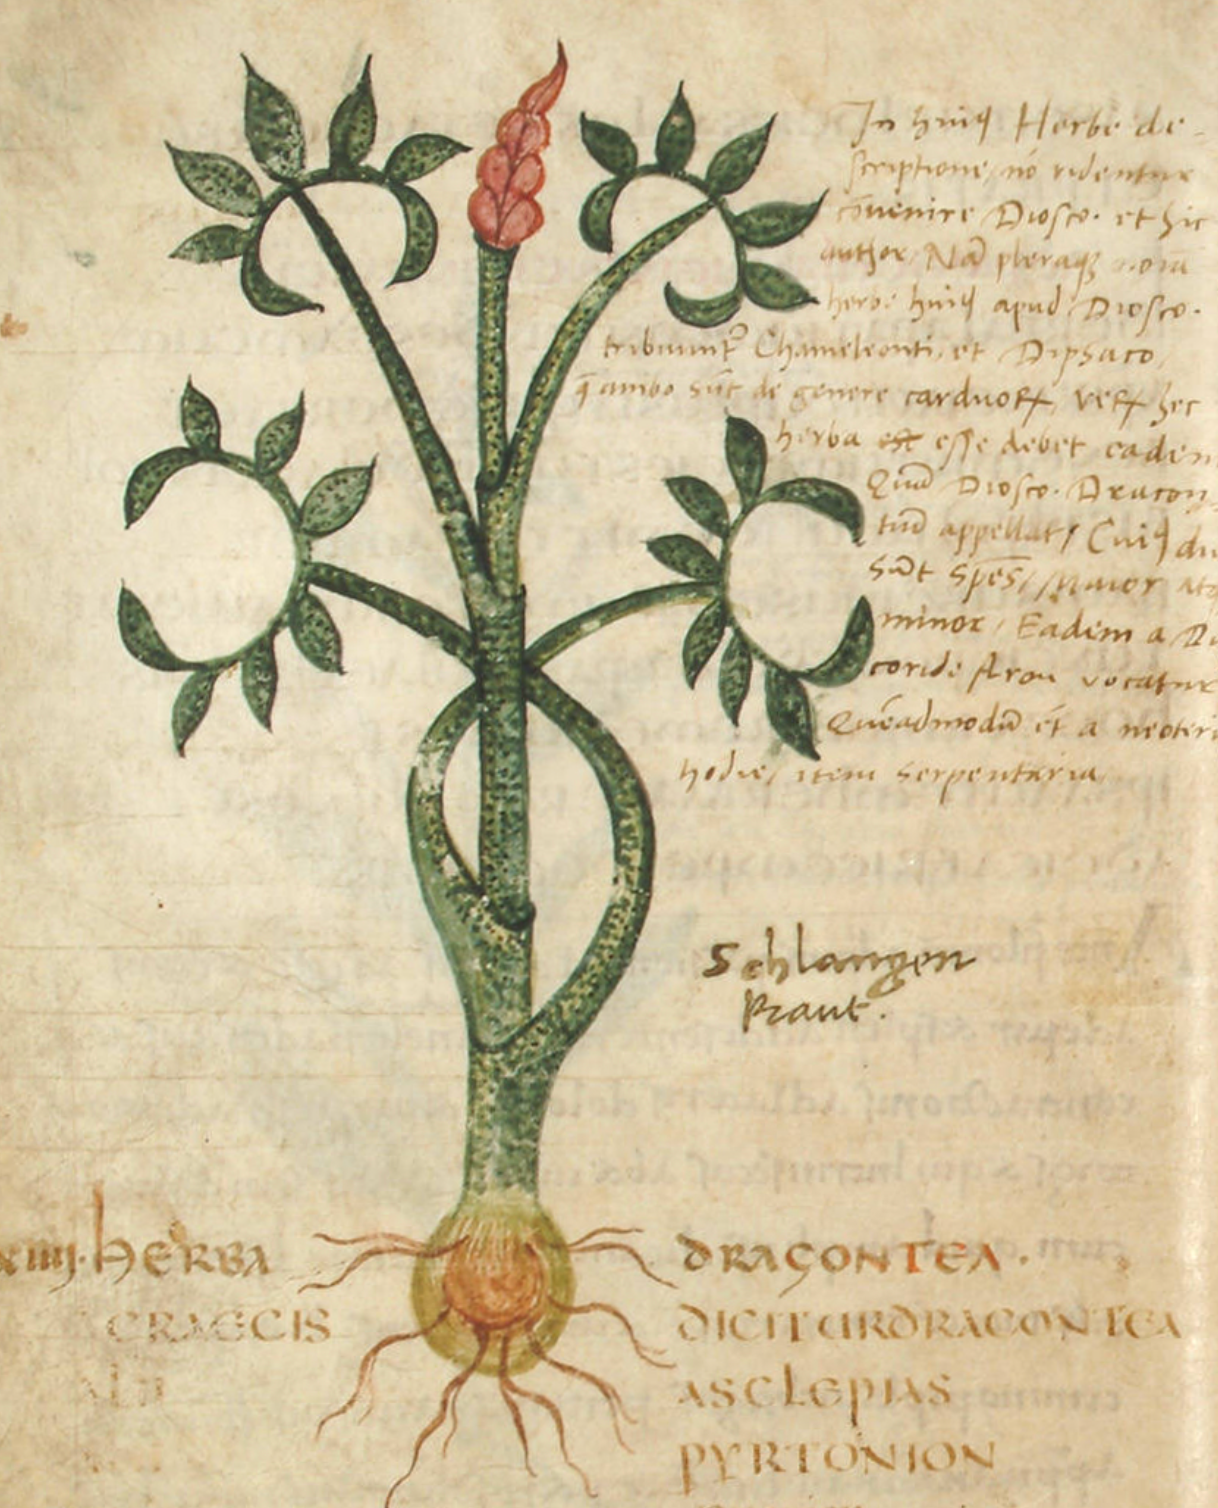 In huiꝰ Herbe de-
scriptione, nō videntur
cōuenire Diosco. et hic
author, Nā pleraqꝫ noīa
herbe huiꝰ apud Diosco.
tribuunt᷑ Chameleonti, et Dipsaco,
q̄ ambo sūt de genere carduoꝝ, veꝝ hec
herba est esse debet eadem
Quā Diosco. Dracon-
tiū appellat, Cuiꝰ du
sūt sp̄es, Maior atq
minor, Eadem a Di
coride Aron vocatur
Quēadmodū et a neoteri
hodie, item serpentaria
Schlangen
kraut.
XIIII. HERBA DRACONTEA.
GRAECIS DICITUR DRACONTEA
ALII ASCLEPIAS
PYRTONION